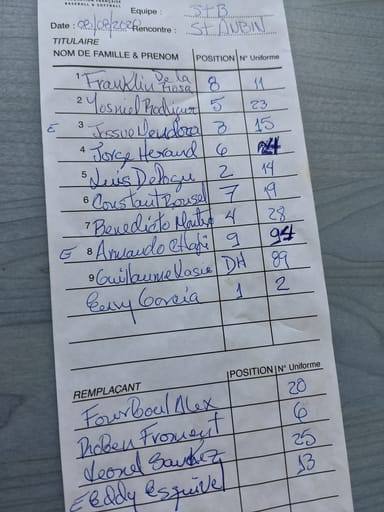 BASEBALL & SOFTBALL
Equipe : StB
Date : 08/08/2020 Rencontre : St AUBIN
TITULAIRE
NOM DE FAMILLE & PRENOM POSITION N° Uniforme
1 Franklin De la Rosa 8 11
2 Yosmel Rodriguez 5 23
E 3 Jesus Mendoza 3 15
4 Jorge Heraud 6
5 Luis 2 14
6 Constant Roussel 7 19
7 Benedicto 4 28
E 8 Armando 9 94
9 Guillaume DH 89
Garcia 1 2
REMPLAÇANT POSITION N° Uniforme
Alex 20
Froment 6
Leonel Sanchez 25
E Eddy Esquivel 13